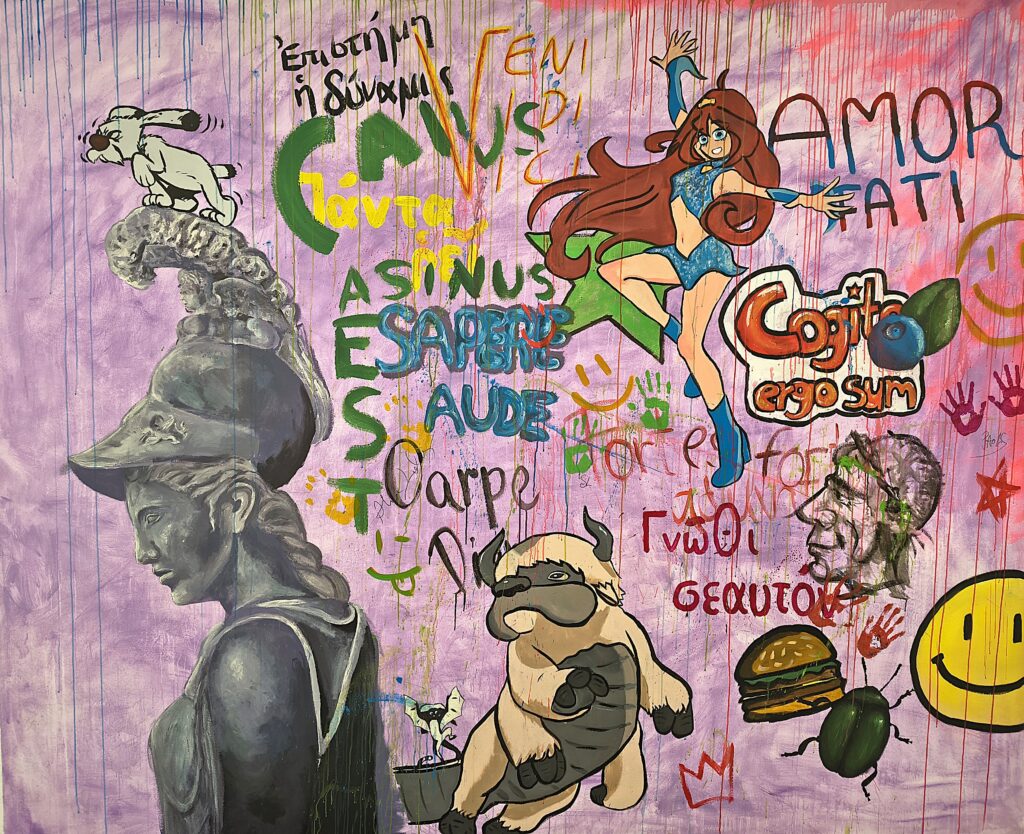 Ἐπιστήμη
ἡ δύναμις
VENI
IDI
ICI
CAIUS
πάντα
ῥεῖ
AMOR
FATI
ASINUS
EST
SAPERE
AUDE
Cogito
ergo sum
Carpe
Fortes
Γνῶθι
σεαυτόν